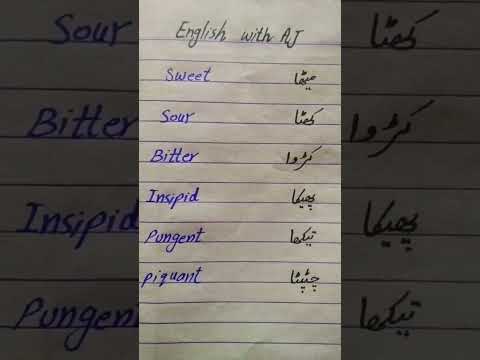 English with AJ
Sweet میٹھا
Sour کھٹا
Bitter کڑوا
Insipid پھیکا
Pungent تیکھا
piquant چٹپٹا
Sour کھٹا
Bitter کڑوا
Insipid پھیکا
Pungent تیکھا